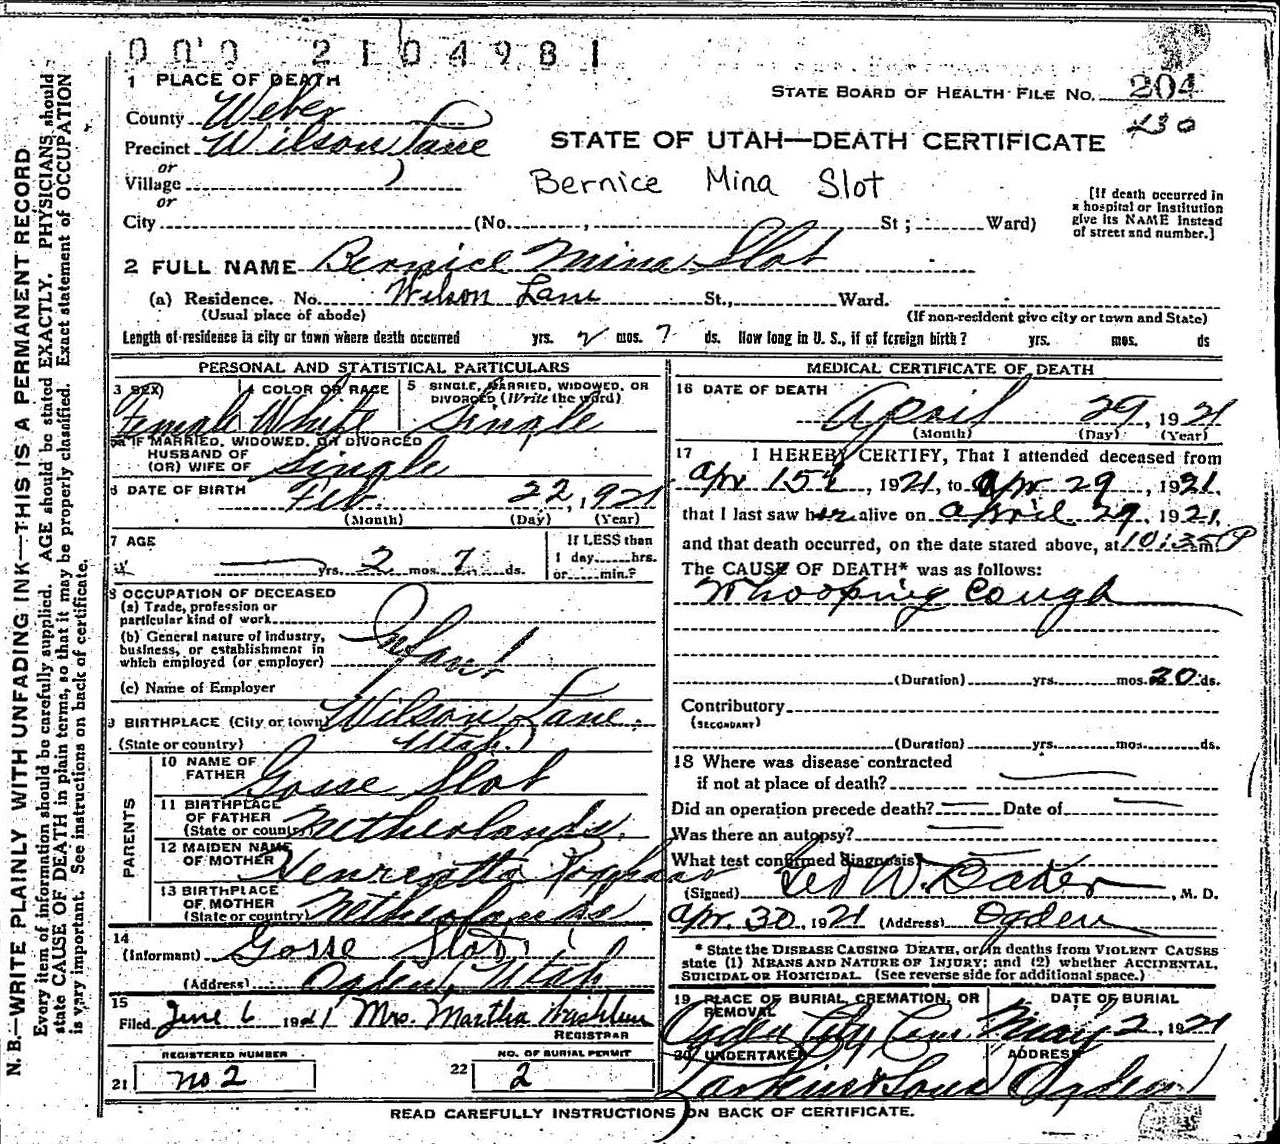 000 2104981
1 PLACE OF DEATH
STATE BOARD OF HEALTH FILE No. 204
County Weber
430
Precinct Wilson Lane
STATE OF UTAH—DEATH CERTIFICATE
or
Village
Bernice Mina Slot
or
[If death occurred in a hospital or institution give its NAME instead of street and number.]
City (No. , St; Ward)
2 FULL NAME Bernice Mina Slot
(a) Residence. No. Wilson Lane St., Ward.
(Usual place of abode) (If non-resident give city or town and State)
Length of residence in city or town where death occurred yrs. 2 mos. 7 ds. How long in U. S., if of foreign birth? yrs. mos. ds
PERSONAL AND STATISTICAL PARTICULARS
3 SEX Female
4 COLOR OR RACE White
5 SINGLE, MARRIED, WIDOWED, OR DIVORCED (Write the word) Single
5a IF MARRIED, WIDOWED, OR DIVORCED
HUSBAND OF
(OR) WIFE OF Single
6 DATE OF BIRTH Feb. 22, 1921
(Month) (Day) (Year)
7 AGE yrs. 2 mos. 7 ds.
If LESS than
1 day hrs.
or min.?
8 OCCUPATION OF DECEASED
(a) Trade, profession or
particular kind of work
(b) General nature of industry,
business, or establishment in
which employed (or employer)
Infant
(c) Name of Employer
9 BIRTHPLACE (City or town) Wilson Lane.
(State or country) Utah.
PARENTS
10 NAME OF
FATHER Gosse Slot
11 BIRTHPLACE
OF FATHER
(State or country) Netherlands.
12 MAIDEN NAME
OF MOTHER Henrietta
13 BIRTHPLACE
OF MOTHER
(State or country) Netherlands
14
(Informant) Gosse Slot
(Address) Ogden, Utah
15
Filed June 6 1921 Mrs. Martha Washburn
REGISTRAR
REGISTERED NUMBER
21 no 2
NO. OF BURIAL PERMIT
22 2
MEDICAL CERTIFICATE OF DEATH
16 DATE OF DEATH
April 29, 1921
(Month) (Day) (Year)
17 I HEREBY CERTIFY, That I attended deceased from
Apr 15, 1921, to Apr 29, 1921,
that I last saw her alive on April 29, 1921,
and that death occurred, on the date stated above, at 10:35 P m.
The CAUSE OF DEATH* was as follows:
Whooping Cough
(Duration) yrs. mos. 20 ds.
Contributory
(SECONDARY)
(Duration) yrs. mos. ds.
18 Where was disease contracted
if not at place of death?
Did an operation precede death? Date of
Was there an autopsy?
What test confirmed diagnosis?
(Signed) Geo W. Baker, M. D.
Apr. 30, 1921 (Address) Ogden
* State the DISEASE CAUSING DEATH, or, in deaths from VIOLENT CAUSES
state (1) MEANS AND NATURE OF INJURY; and (2) whether ACCIDENTAL,
SUICIDAL OR HOMICIDAL. (See reverse side for additional space.)
19 PLACE OF BURIAL, CREMATION, OR
REMOVAL
Ogden City Cem
DATE OF BURIAL
May 2, 1921
20 UNDERTAKER
Larkin & Sons
ADDRESS
Ogden
READ CAREFULLY INSTRUCTIONS ON BACK OF CERTIFICATE.
N. B.—WRITE PLAINLY WITH UNFADING INK—THIS IS A PERMANENT RECORD
Every item of information should be carefully supplied. AGE should be stated EXACTLY. PHYSICIANS should
state CAUSE OF DEATH in plain terms, so that it may be properly classified. Exact statement of OCCUPATION
is very important. See instructions on back of certificate.